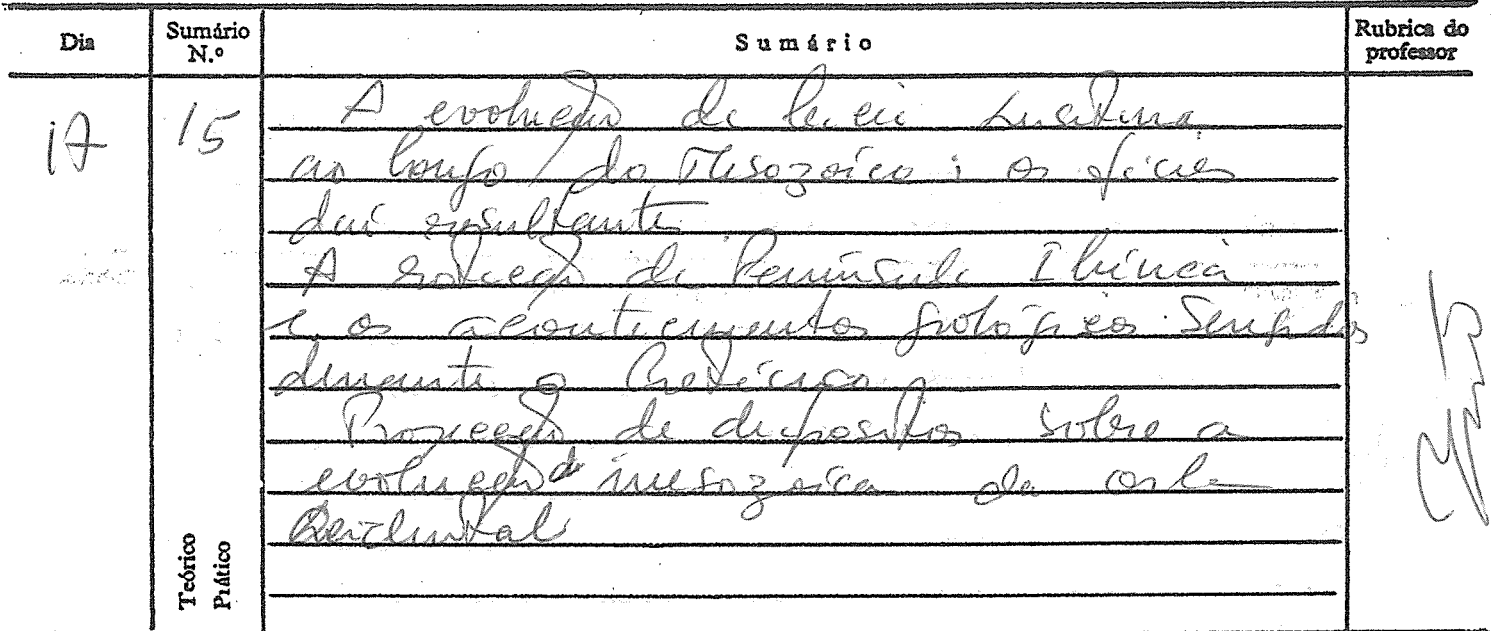 Dia
Sumário N.º
Sumário
Rubrica do professor
17
15
A evolução da bacia Lusitana
ao longo do Mesozoico; as fácies
daí resultantes
A rotação da Península Ibérica
e os acontecimentos geológicos
durante o Cretácico
Projecção de diapositivos sobre a
evolução mesozoica da orla
Ocidental
Teórico
Prático